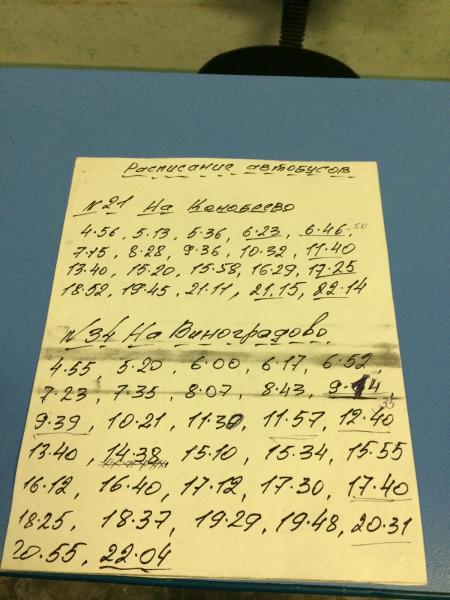 Расписание автобусов
№21 На Конобеево
4.56, 5.13, 5.36, 6.23, 6.46, 50
7.15, 8.28, 9.36, 10.32, 11.40
13.40, 15.20, 15.58, 16.29, 17.25
18.52, 19.45, 21.11, 21.15, 22.14
№34 На Виноградово
4.55, 5.20, 6.00, 6.17, 6.52,
7.23, 7.35, 8.07, 8.43, 9.14
9.39, 10.21, 11.30, 11.57, 12.40 35
13.40, 14.38, 15.10, 15.34, 15.55
16.12, 16.40, 17.12, 17.30, 17.40
18.25, 18.37, 19.29, 19.48, 20.31
20.55, 22.04